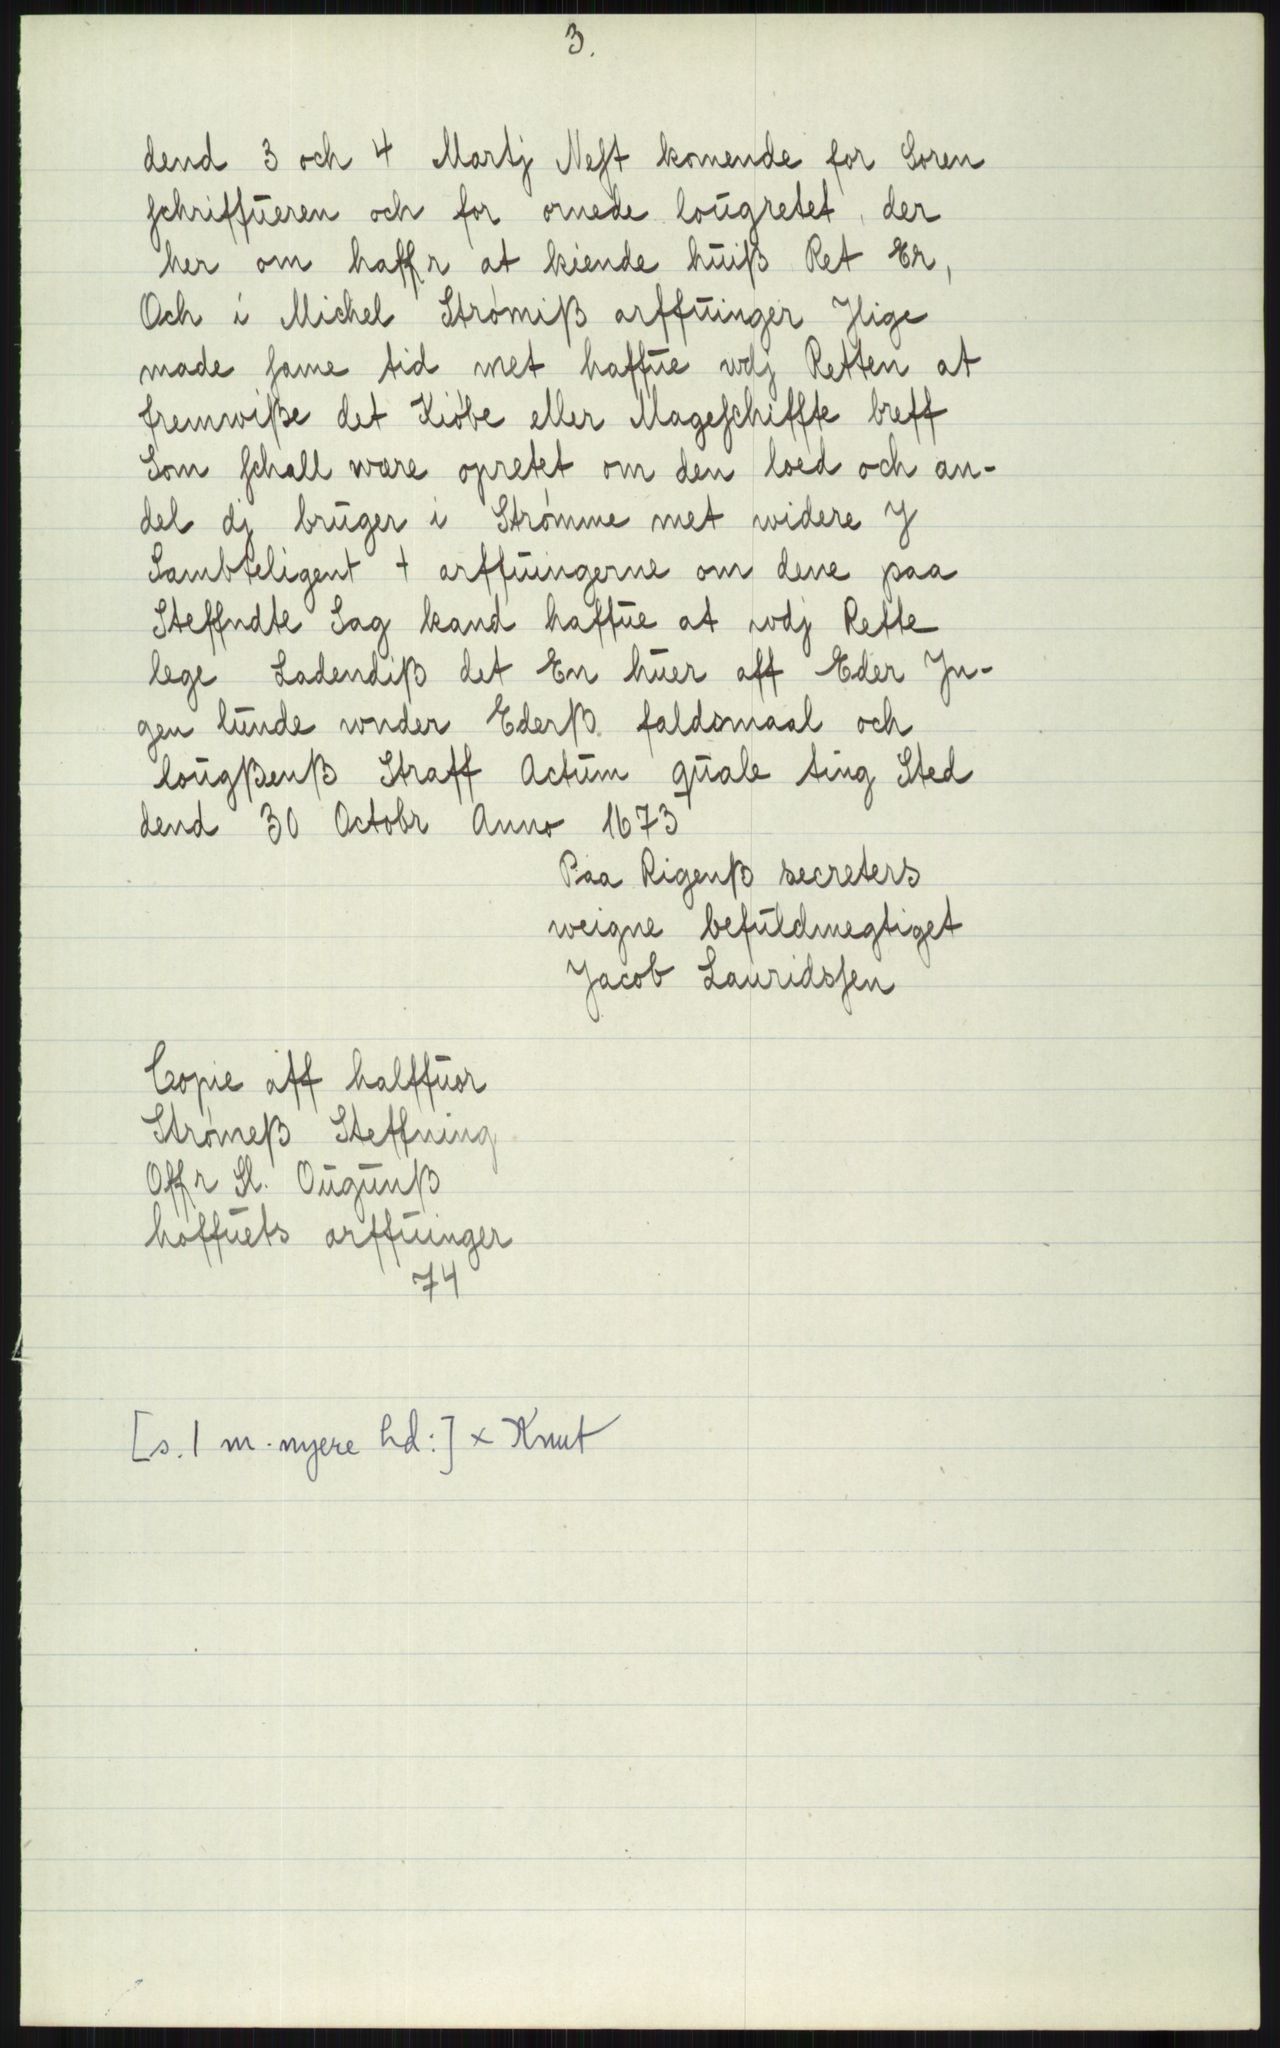 3.
dend 3 och 4 Martj Nest komende for Soren
schriffueren och for ornede lougretet, der
her om haffr at kiende huiß Ret Er,
Och i Michel Strømiß arffuinger Jlige
made same tid met haffue wdj Retten at
fremwiße det Kiøbe eller Mageschiffte breff
Som schall were opretet om den loed och an-
del dj bruger i Strømme met widere J
Sambteligent + arffuingerne om dene paa
Steffndte Sag kand haffue at wdj Rette
lege Ladendiß det En huer aff Eder Jn-
gen lunde wnder Ederß faldsmaal och
lougßenß Straff Actum quale ting Sted
dend 30 Octobr Anno 1673
Paa Rigenß secreters
weigne befuldmegtiget
Jacob Lauridssen
Copie aff halffuor
Strømeß Steffning
Offr Sl. Ougunß
høffuets arffuinger
74
[s. 1 m. nyere hd:] × Knut